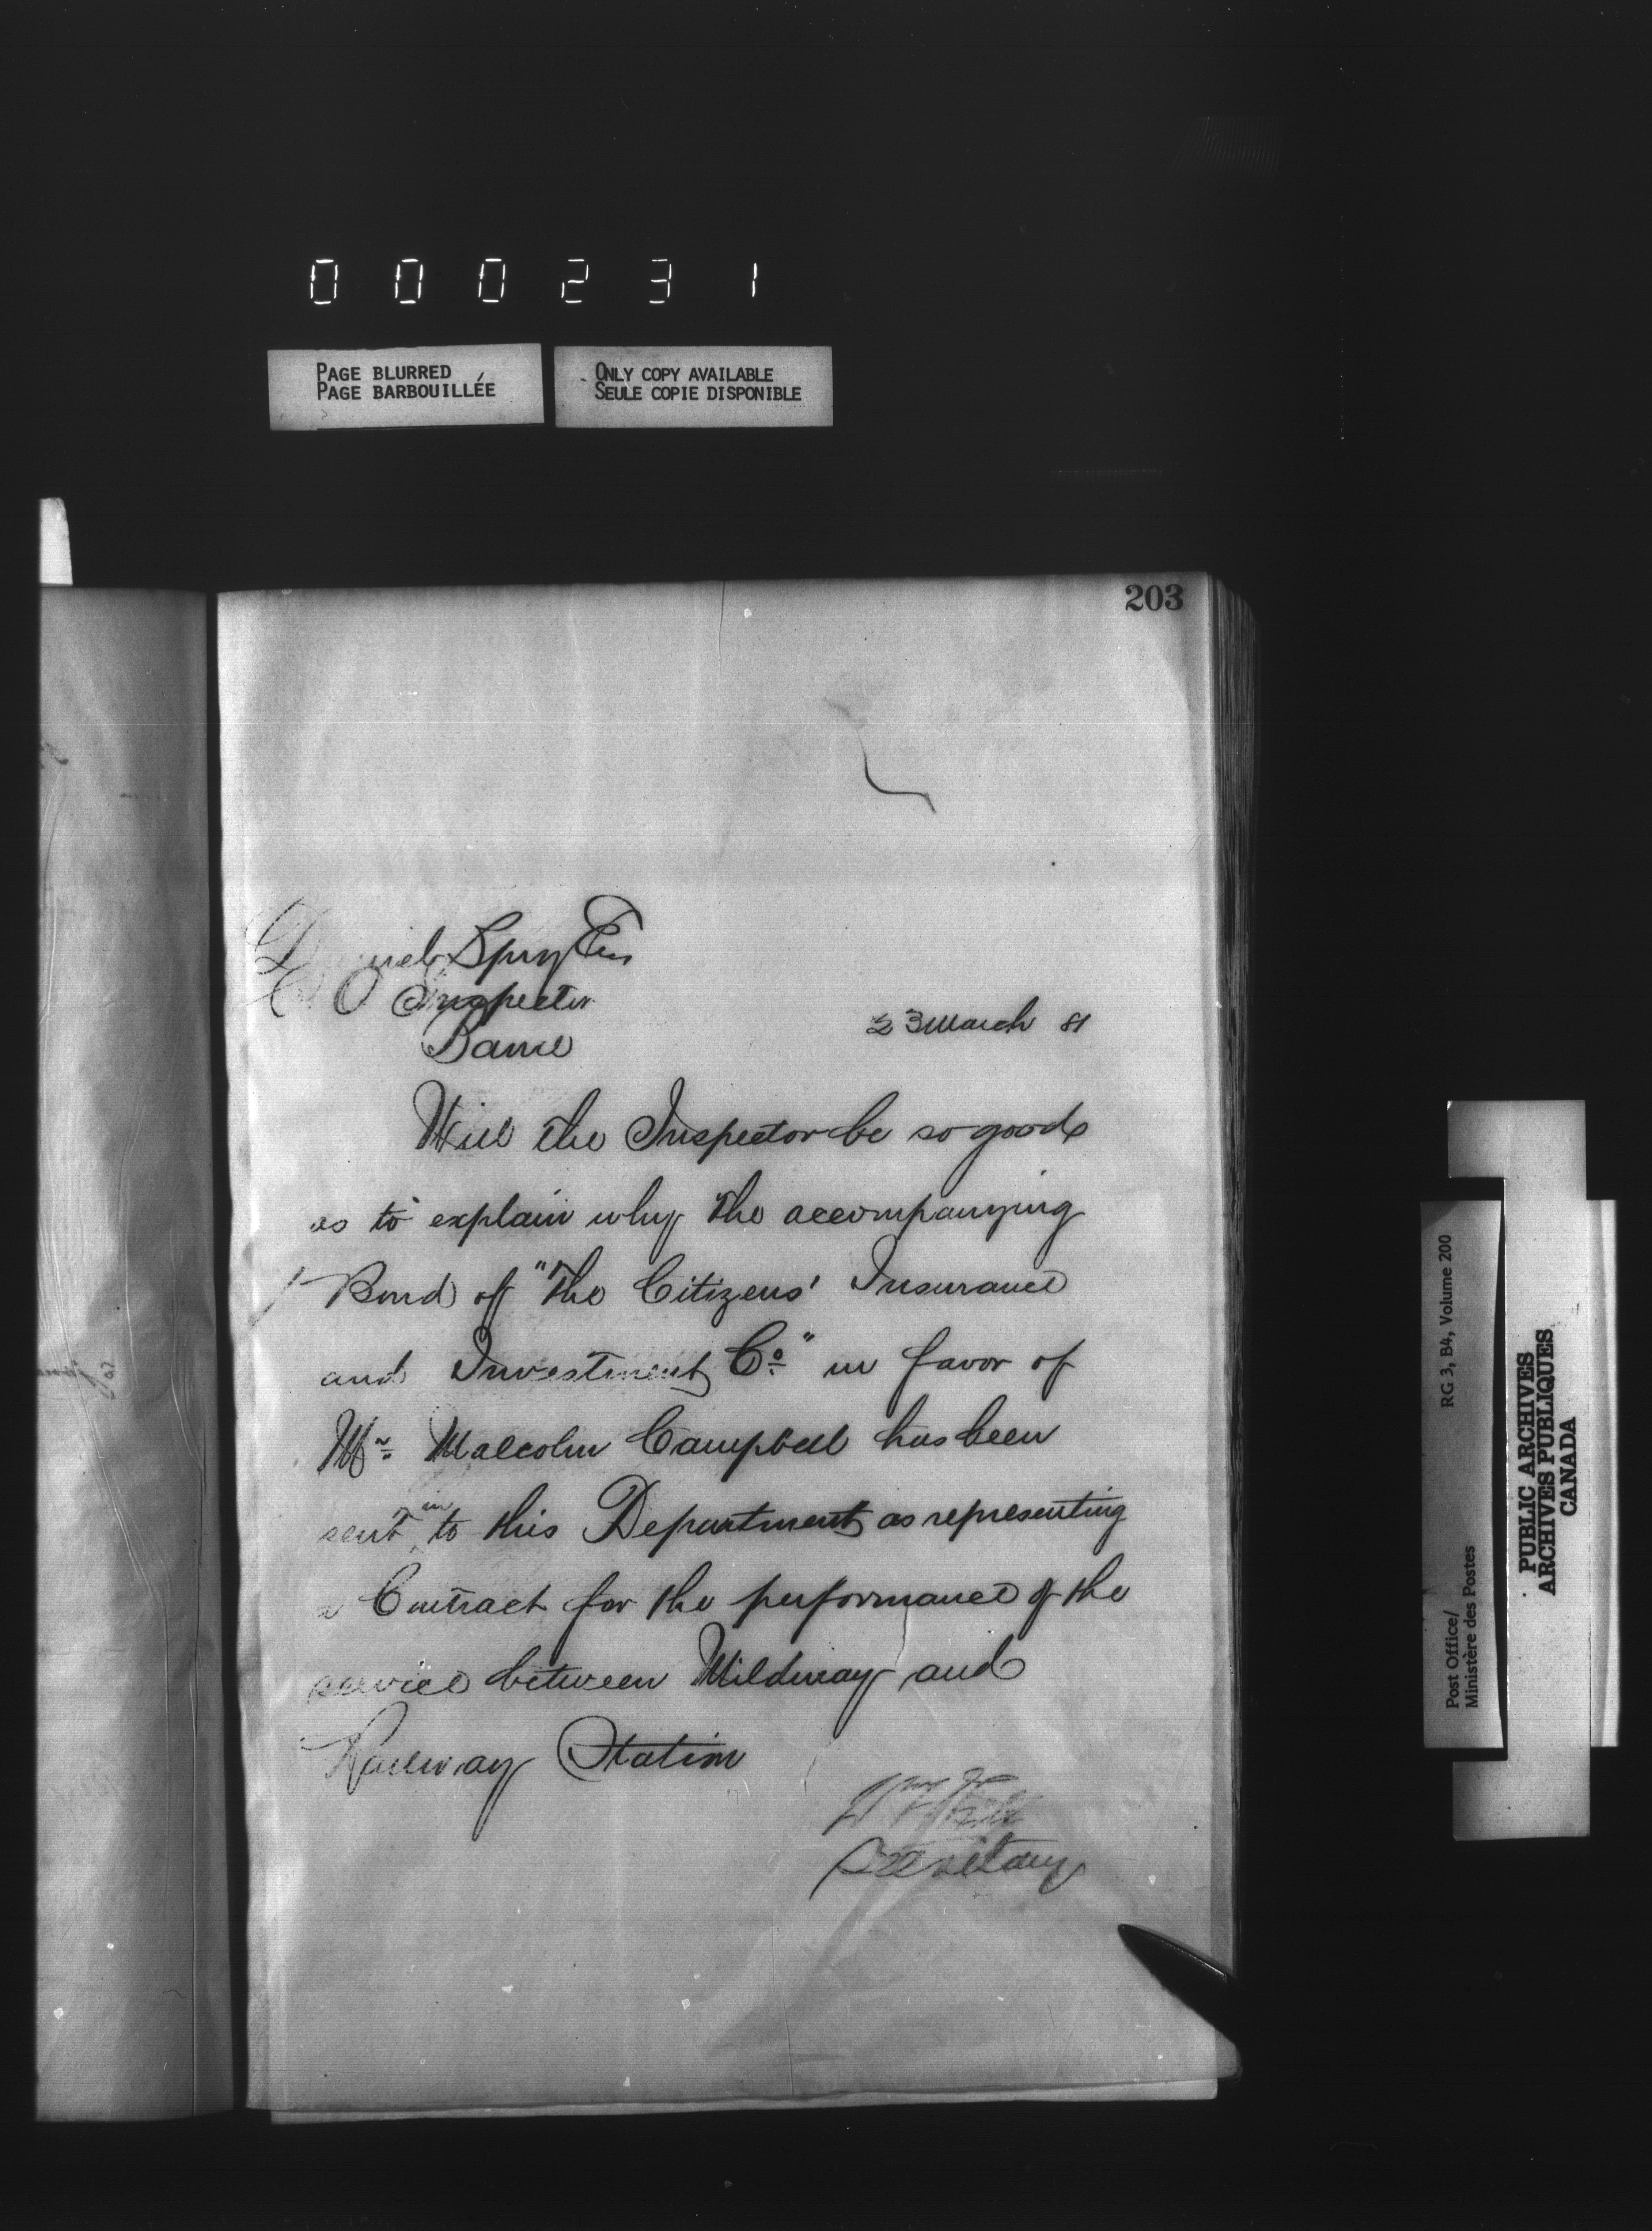 000231
PAGE BLURRED
PAGE BARBOUILLÉE
ONLY COPY AVAILABLE
SEULE COPIE DISPONIBLE
203
Daniel Spry Esq
P O Inspector
Barrie
23 March 81
Will the Inspector be so good
as to explain why the accompanying
Bond of "The Citizens' Insurance
and Investment Co." in favor of
Mr. Malcolm Campbell has been
sent in to this Department as representing
a Contract for the performance of the
service between Mildmay and
Railway Station
Secretary
RG 3, B4, Volume 200
Post Office/
Ministère des Postes
PUBLIC ARCHIVES
ARCHIVES PUBLIQUES
CANADA